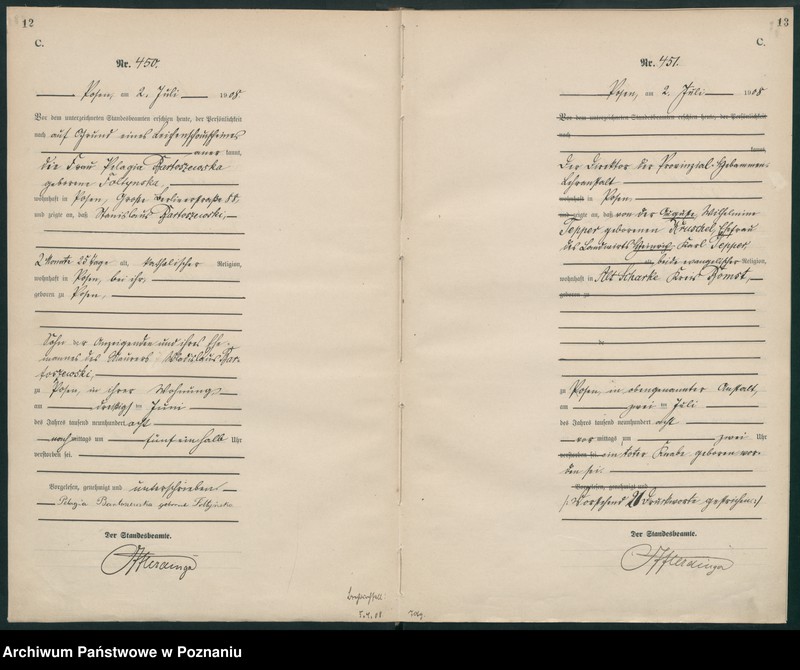 12
C.
Nr. 450.
Posen, am 2. Juli 1908
Vor dem unterzeichneten Standesbeamten erschien heute, der Persönlichkeit
nach auf Grund eines Leichenschauscheines
aner kannt,
die Frau Pelagia Bartoszewska
geborene Foltynska,
wohnhaft in Posen, Große Berlinerstraße
und zeigte an, daß Stanislaus Bartoszewski,
2 Monate 25 Tage alt, katholischer Religion,
wohnhaft in Posen, bei ihr,
geboren zu Posen,
Sohn der Anzeigenden und ihres Ehe-
mannes des Maurers Wladislaus Bar-
toszewski,
zu Posen, in ihrer Wohnung
am dreißigsten Juni
des Jahres tausend neunhundert acht
nachmittags um fünfeinhalb Uhr
verstorben sei.
Vorgelesen, genehmigt und unterschrieben
Pelagia Bartoszewska geborene Foltynska
Der Standesbeamte.
13
C.
Nr. 451.
Posen, am 2. Juli 1908
Vor dem unterzeichneten Standesbeamten erschien heute, der Persönlichkeit
nach
kannt,
Der Direktor der Provinzial-Hebammen-
Lehranstalt
wohnhaft in Posen,
und zeigte an, daß von der Auguste Wilhelmine
Tepper geborenen Kruschel, Ehefrau
des Landwirts Heinrich Karl Tepper,
alt, beide evangelischer Religion,
wohnhaft in Alt Scharke Kreis Bomst,
geboren zu
de
zu Posen, in obengenannter Anstalt,
am zwei ten Juli
des Jahres tausend neunhundert acht
vormittags um zwei Uhr
verstorben sei. ein toter Knabe geboren wor-
den sei.
Vorgelesen, genehmigt und
/: Vorstehend Druckworte gestrichen :/
Der Standesbeamte.
Archiwum Państwowe w Poznaniu